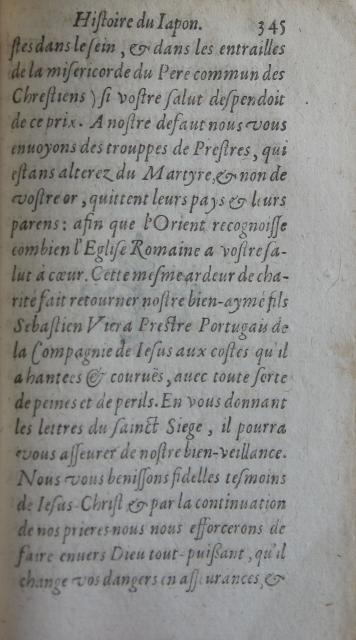 Histoire du Iapon. 345
stes dans le sein, & dans les entrailles
de la misericorde du Pere commun des
Chrestiens) si vostre salut despendoit
de ce prix. A nostre defaut nous vous
enuoyons des trouppes de Prestres, qui
estans alterez du Martyre, & non de
vostre or, quittent leurs pays & leurs
parens: afin que l'Orient recognoisse
combien l'Eglise Romaine a vostre sa-
lut à cœur. Cette mesme ardeur de cha-
rité fait retourner nostre bien-aymé fils
Sebastien Viera Prestre Portugais de
la Compagnie de Iesus aux costes qu'il
a hantees & couruës, auec toute sorte
de peines et de perils. En vous donnant
les lettres du sainct Siege, il pourra
vous asseurer de nostre bien-veillance.
Nous vous benissons fidelles tesmoins
de Iesus-Christ & par la continuation
de nos prieres nous nous efforcerons de
faire enuers Dieu tout-puissant, qu'il
change vos dangers en asseurances, &